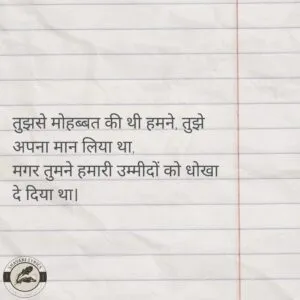 तुझसे मोहब्बत की थी हमने, तुझे
अपना मान लिया था,
मगर तुमने हमारी उम्मीदों को धोखा
दे दिया था।